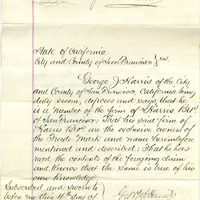 State of California
City and County of San Francisco } ss.
George J Harris of the City
and County of San Francisco, California being
duly sworn, deposes and says that he
is a member of the firm of Harris Bros
of San Francisco. That his said firm of
Harris Bros. are the
of the Trade Mark and name hereinbefore
mentioned and described; That he has
read the contents of the foregoing claim
and knows that the same is true of his
own knowledge.
Subscribed and sworn to
before me this 14th day of